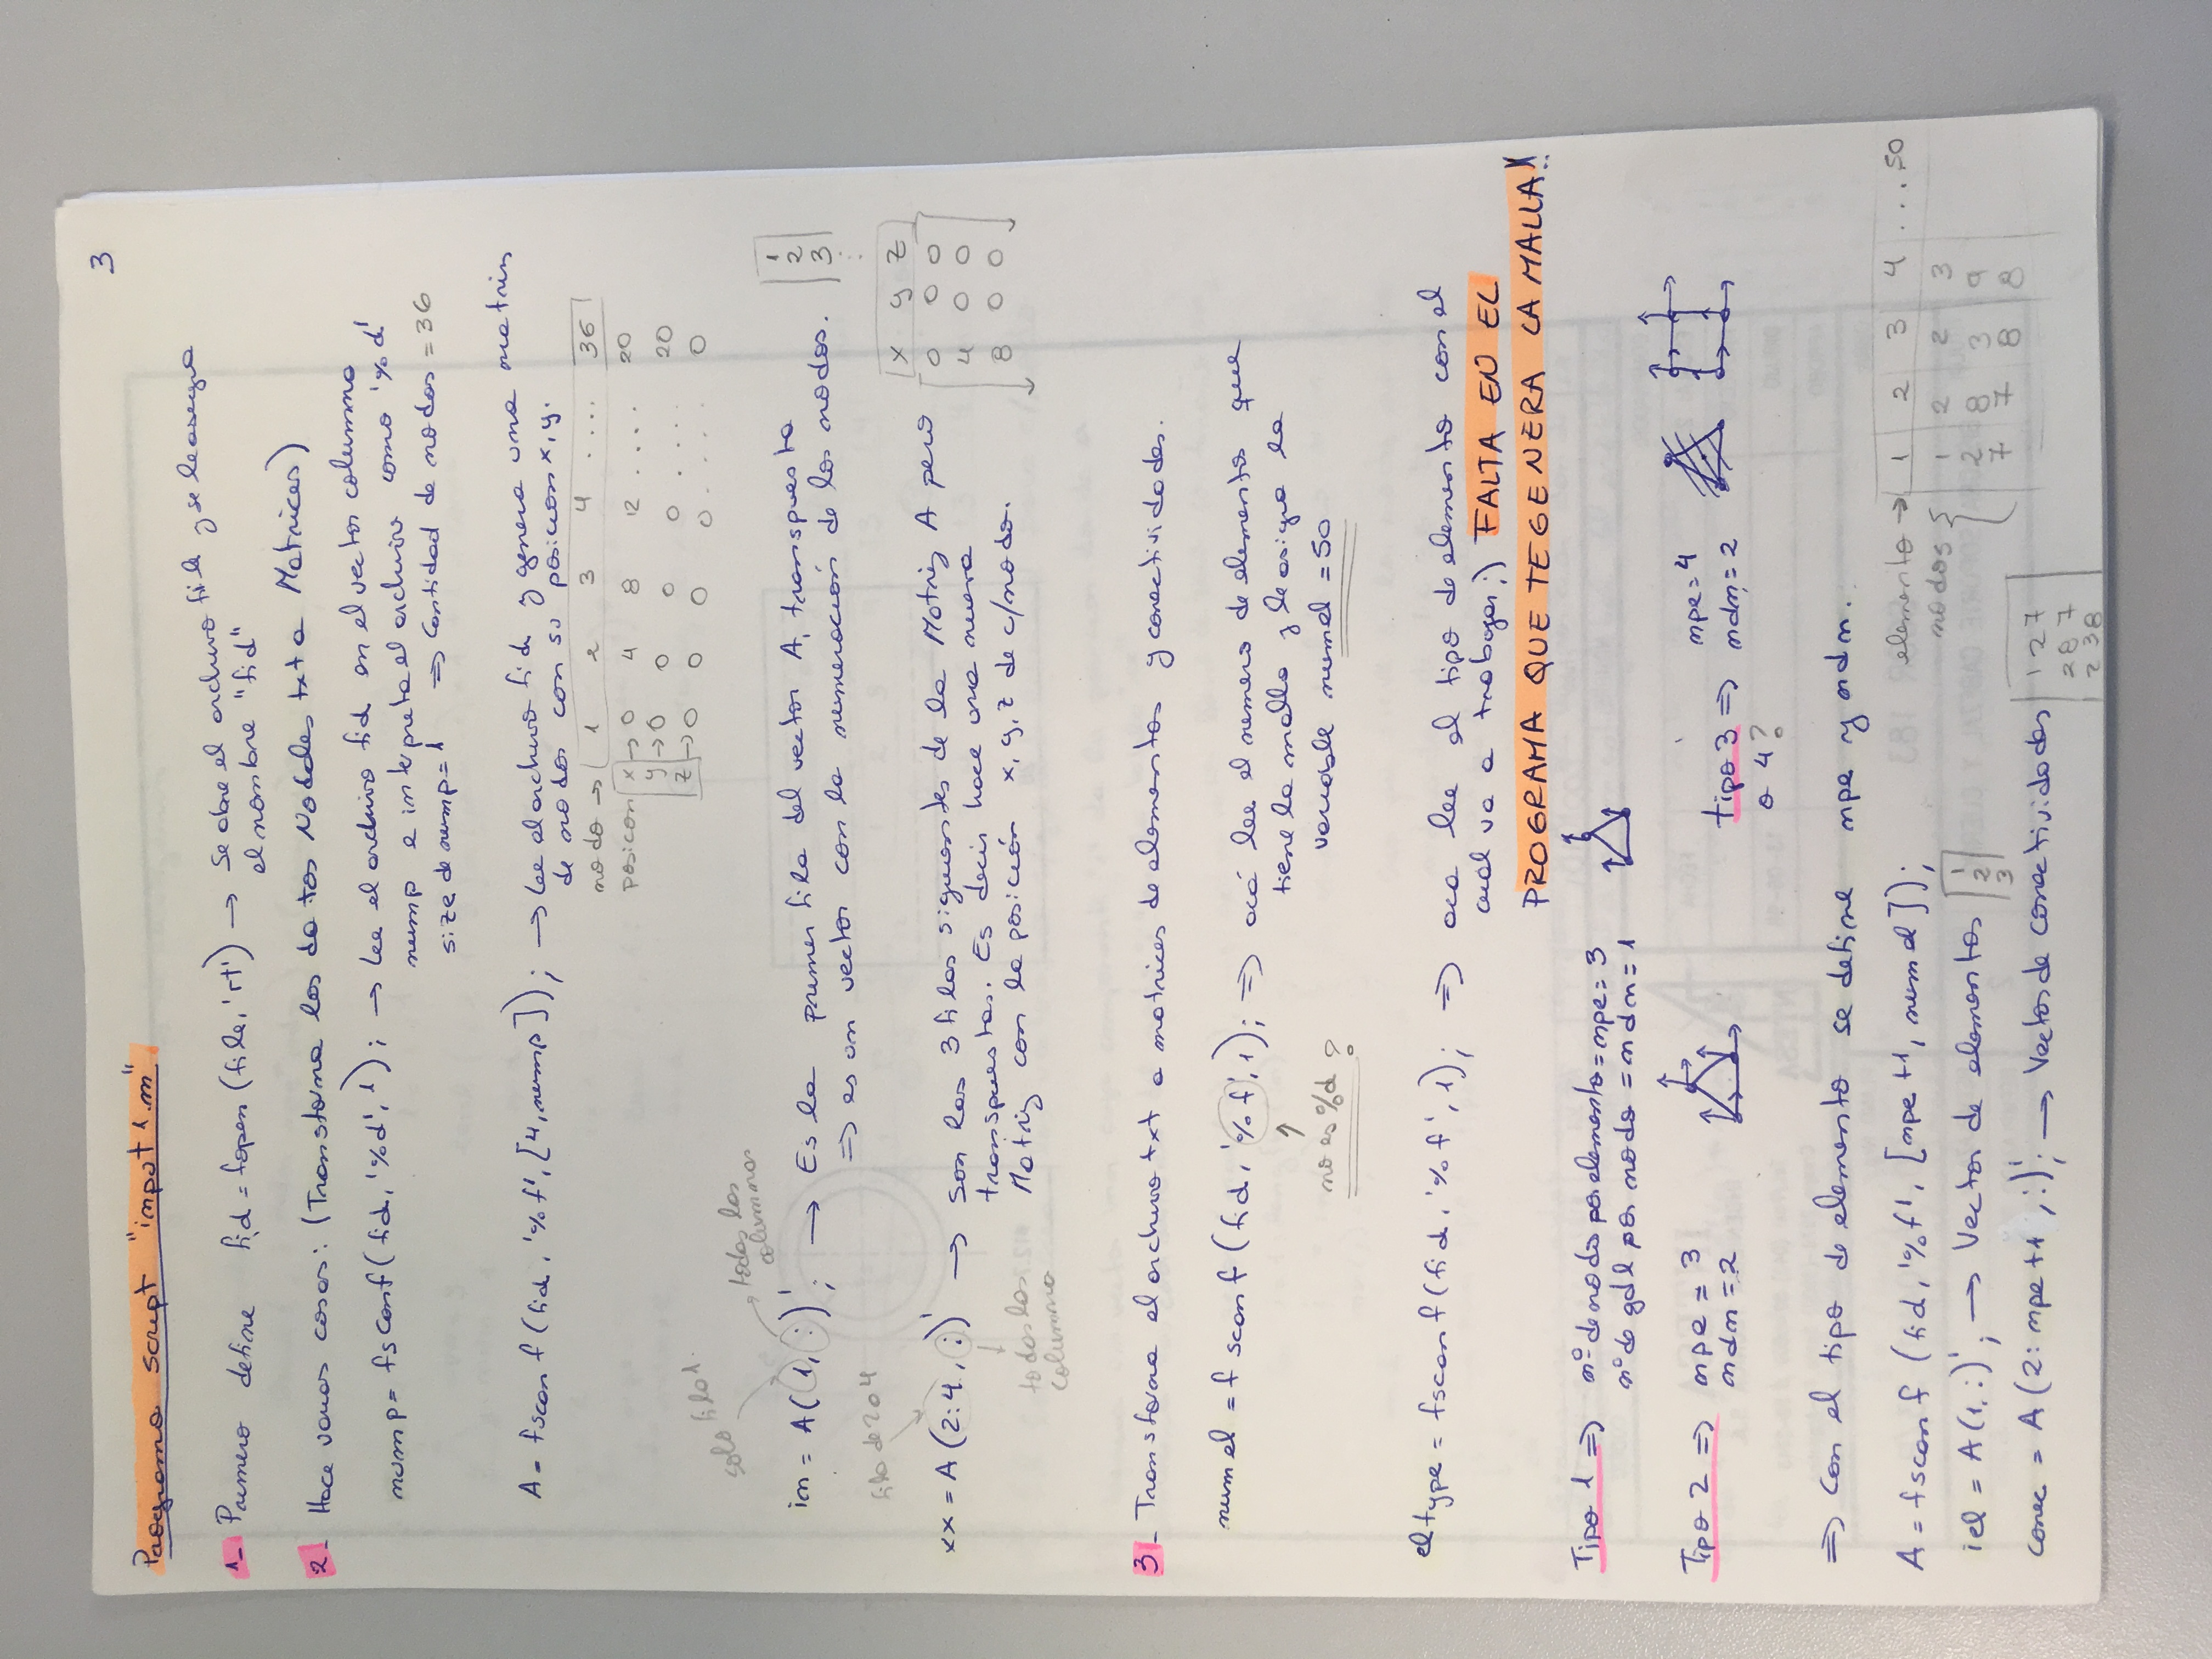 3
Programa script "input1.m"
1- Primero define fid = fopen (file, 'rt') → Se abre el archivo file y se le asegna
el nombre "fid"
2- Hace varias cosas: (Transforma los datos Nodales txt a Matrices)
nump = fscanf (fid, '%d', 1); → Lee el archivo fid en el vector columna
nump e interpreta el archivo como '%d'
size de nump = 1 ⇒ Cantidad de nodos = 36
A = fscanf (fid, '%f', [4, nump]); → Lee el archivo fid y genera una matriz
de nodos con su posicion x, y.
nodo → 1 2 3 4 .... 36
posicon x → 0 4 8 12 .... 20
y → 0 0 0 0 .... 20
z → 0 0 0 0 .... 0
solo fila 1.
todas las
columnas
in = A(1, :)'; → Es la primer fila del vector A, transpuesta
⇒ es un vector con la numeración de los nodos.
1
2
3
:
fila de 2 a 4
xx = A (2:4, :)' → Son las 3 filas siguientes de la Matriz A pero
transpuestas. Es decir hace una nueva
Matriz con la posición x, y, z de c/nodo.
x y z
0 0 0
4 0 0
8 0 0
todas las
columna
3- Transforma el archivo txt a matrices de elementos y conectividades.
numel = fscanf (fid, '%f', 1); ⇒ acá lee el numero de elementos que
tiene la malla y le asigna la
variable numel = 50
no es %d ?
eltype = fscanf (fid, '%f', 1); ⇒ aca lee el tipo de elemento con el
cual va a trabajar ;) FALTA EN EL
PROGRAMA QUE TE GENERA LA MALLA!!
Tipo 1 ⇒ nº de nodo por elemento = npe = 3
nº de gdl por nodo = ndn = 1
Tipo 2 ⇒ npe = 3
ndn = 2
tipo 3 ⇒ npe = 4
o 4? ndn = 2
⇒ Con el tipo de elemento se define npe y ndn.
A = fscanf (fid, '%f', [npe+1, numel]);
elemento → 1 2 3 4 ... 50
nodos { 1 2 2 3
2 8 3 9
7 7 8 8
iel = A(1, :)'; → Vector de elementos
1
2
3
conec = A(2: npe+1, :)'; → Vector de conectividades
1 2 7
2 8 7
2 3 8